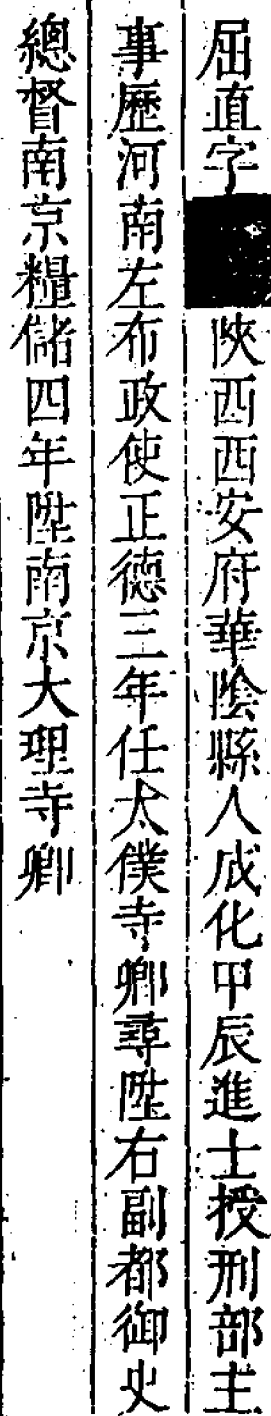 屈直字■■陝西西安府華陰縣人成化甲辰進士授刑部主
事歷河南左布政使正德三年任太僕寺卿尋陞右副都御史
總督南京糧儲四年陞南京大理寺卿